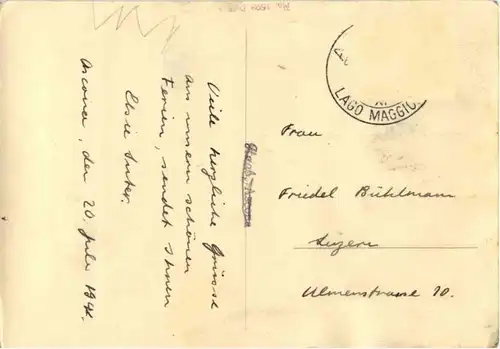 Viele herzliche Grüsse
aus unsern schönen
Ferien, sendet Ihnen
Elsie Suter.
Ascona, den 20. Juli
LAGO MAGGIO
Frau
Friedel Bühlmann
Luzern
Ulmenstrasse 10.